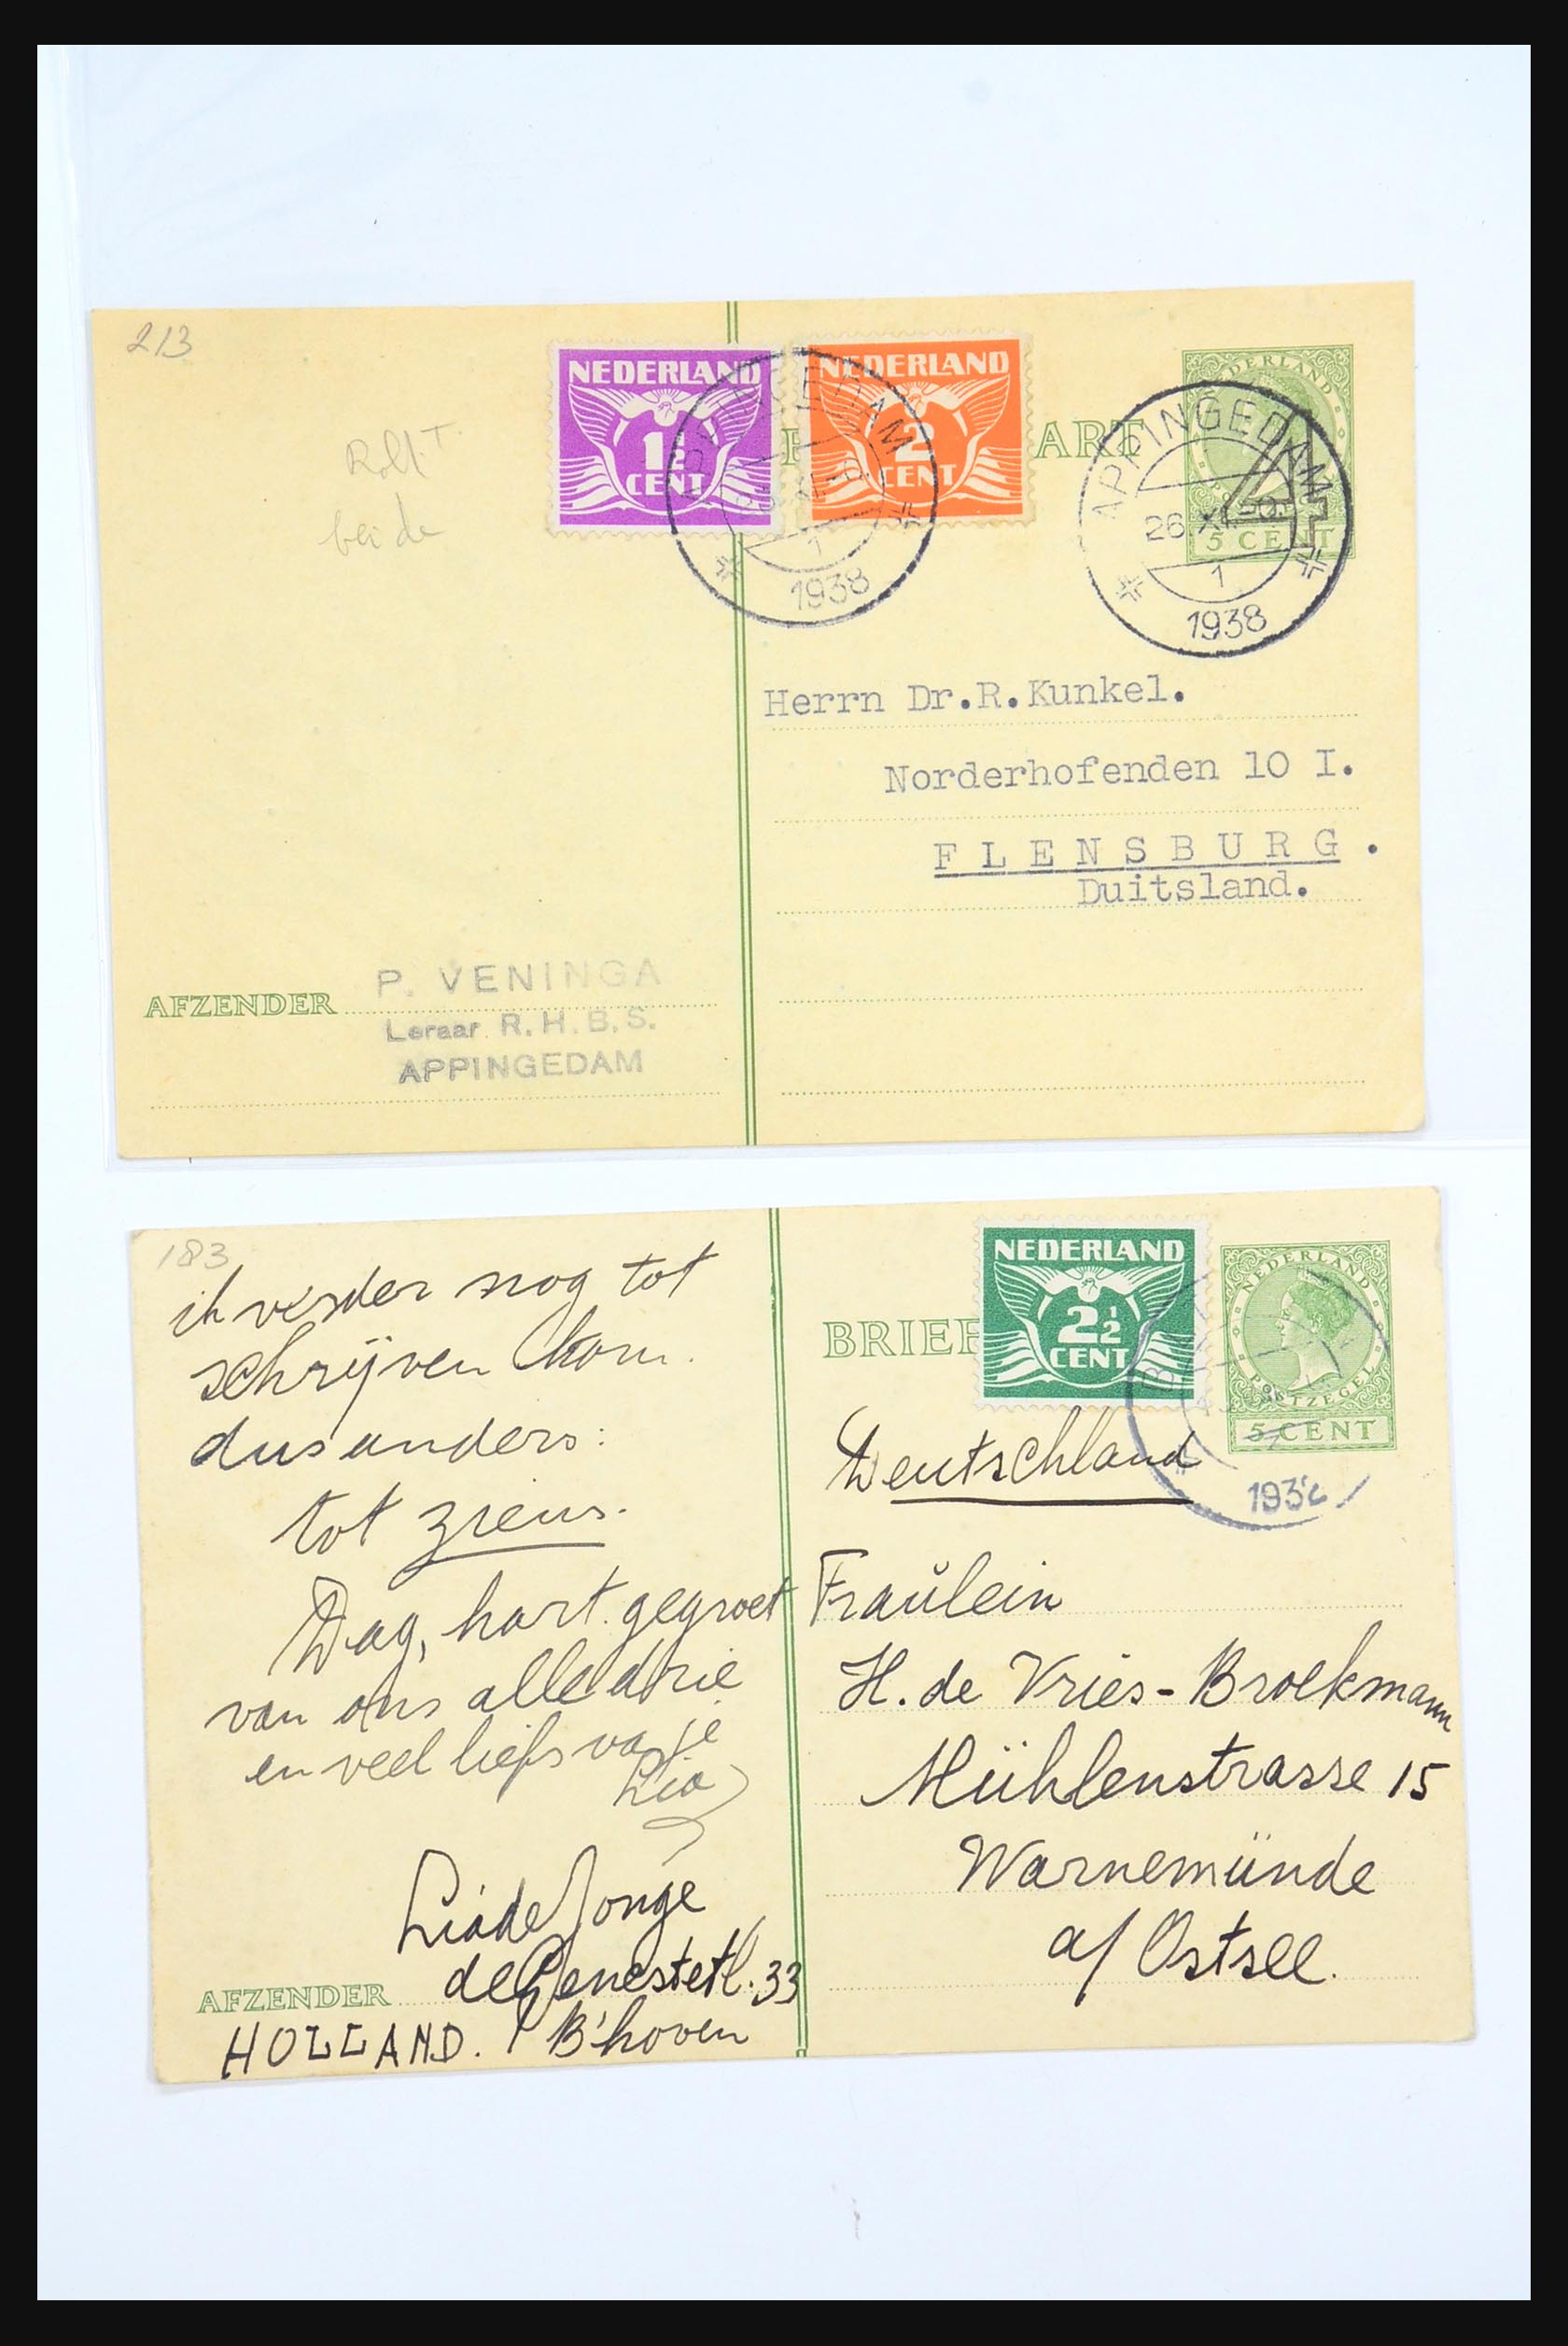 213
NEDERLAND
1½
CENT
NEDERLAND
2
CENT
ART
NEDERLAND
5 CENT
4
APPINGEDAM
1
1938
APPINGEDAM
26 XI
1
1938
beide
Herrn Dr.R.Kunkel.
Norderhofenden 10 I.
FLENSBURG.
Duitsland.
AFZENDER
P. VENINGA
Leraar R.H.B.S.
APPINGEDAM
183
ik verder nog tot
schrijven kom.
dus anders:
tot ziens.
Dag, hart. gegroet
van ons alle drie
en veel liefs van je
Lia
Lia de Jonge
de Genestetl. 33
AFZENDER
HOLLAND. B'hoven
BRIEF
NEDERLAND
2½
CENT
NEDERLAND
POSTZEGEL
5 CENT
Deutschland
Fraŭlein
H. de Vries-Broekmann
Mühlenstrasse 15
Warnemünde
a/ Ostsee.